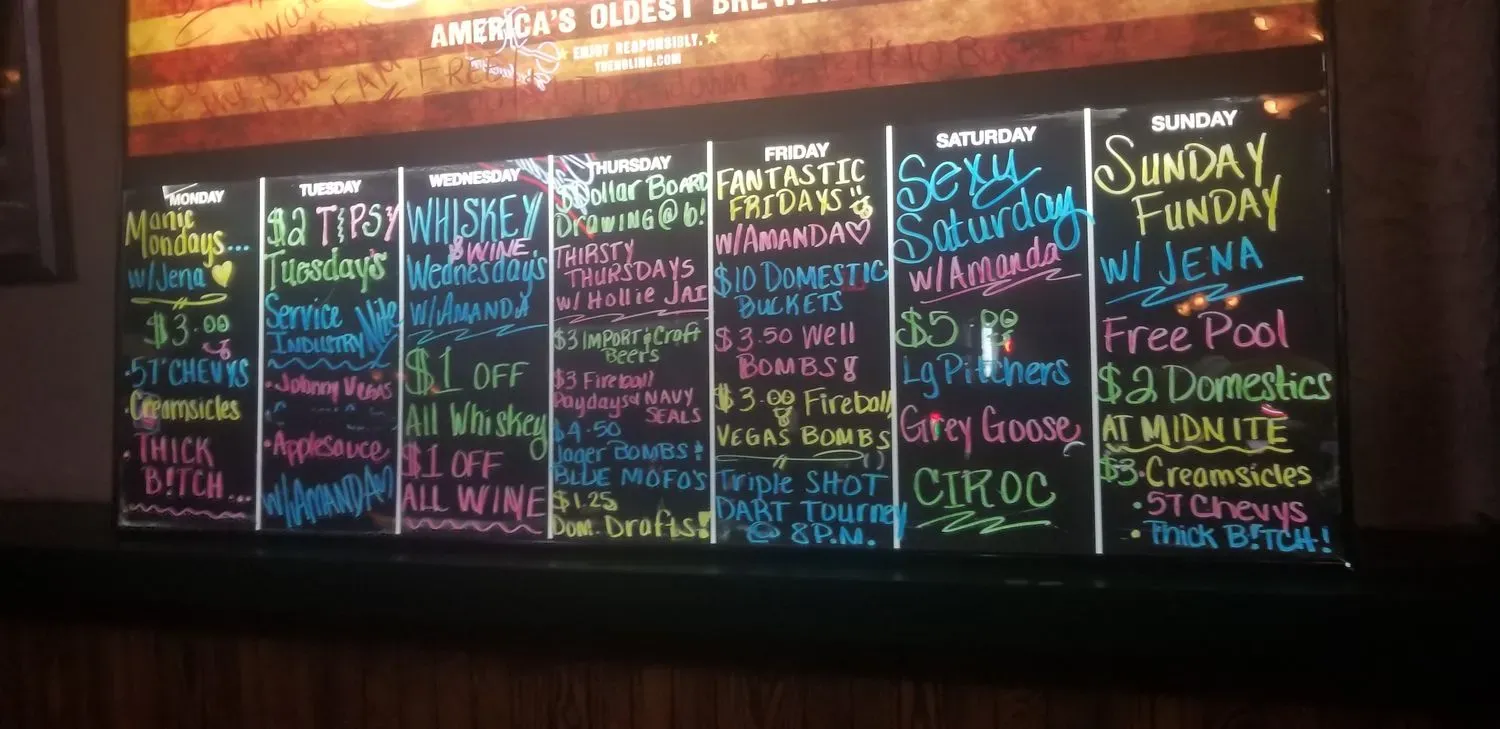 AMERICA'S OLDEST BREWER
ENJOY RESPONSIBLY.
YUENGLING.COM
MONDAY
Manic
Mondays...
w/Jena
$3.00
·57 CHEVYS
·Creamsicles
·THICK
B!TCH...
TUESDAY
$2 TIPSY
Tuesday's
Service
INDUSTRY Nite
·Johnny Vegas
·Applesauce
w/AMANDA
WEDNESDAY
WHISKEY
& WINE
Wednesday's
w/AMANDA
$1 OFF
All Whiskey
$1 OFF
ALL WINE
THURSDAY
$Dollar BOARD
DRAWING @ 6!
THIRSTY
THURSDAYS
w/ Hollie JAI
$3 IMPORT & Craft
Beers
$3 Fireball
Paydays & NAVY
SEALS
$4.50
Jager BOMBS!
BLUE MOFO'S
$1.25
Dom. Drafts!
FRIDAY
FANTASTIC
FRIDAYS!!
w/AMANDA♡
$10 DOMESTIC
BUCKETS
$3.50 Well
BOMBS!
$3.00 Fireball
VEGAS BOMBS
Triple SHOT
DART Tourney
@ 8P.M.
SATURDAY
Sexy
Saturday
w/Amanda
$5.00
Lg Pitchers
Grey Goose
CIROC
SUNDAY
SUNDAY
FUNDAY
W/ JENA
Free Pool
$2 Domestics
AT MIDNITE
$3·Creamsicles
·57 Chevys
·Thick B!TCH!